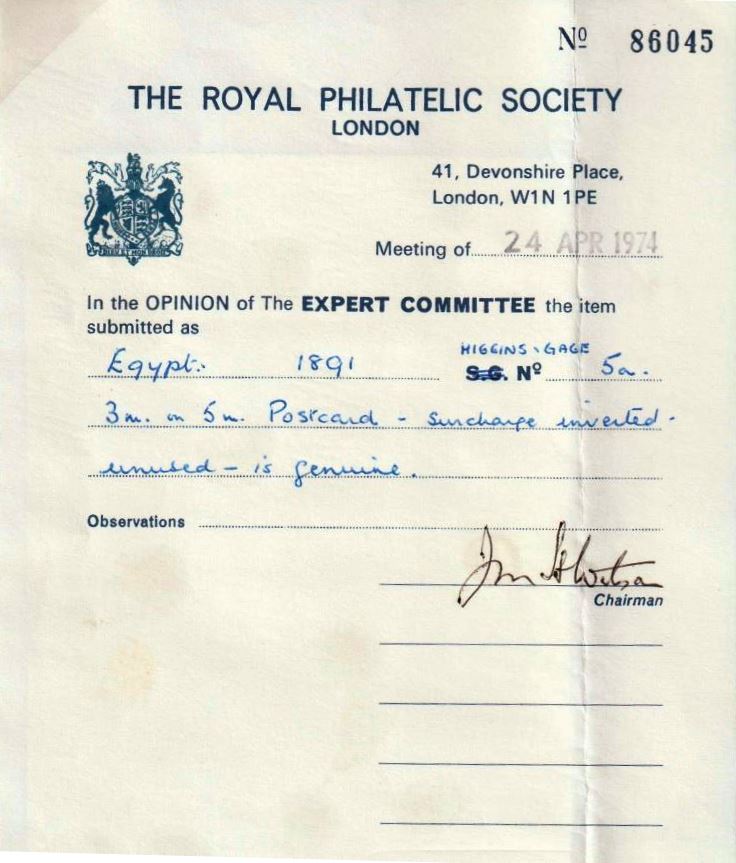 Nº 86045
THE ROYAL PHILATELIC SOCIETY
LONDON
41, Devonshire Place,
London, W1N 1PE
Meeting of 24 APR 1974
In the OPINION of The EXPERT COMMITTEE the item
submitted as
HIGGINS & GAGE
Egypt. 1891 S.G. Nº 5a.
3m. on 5m. Postcard - surcharge inverted -
unused - is genuine.
Observations
Chairman